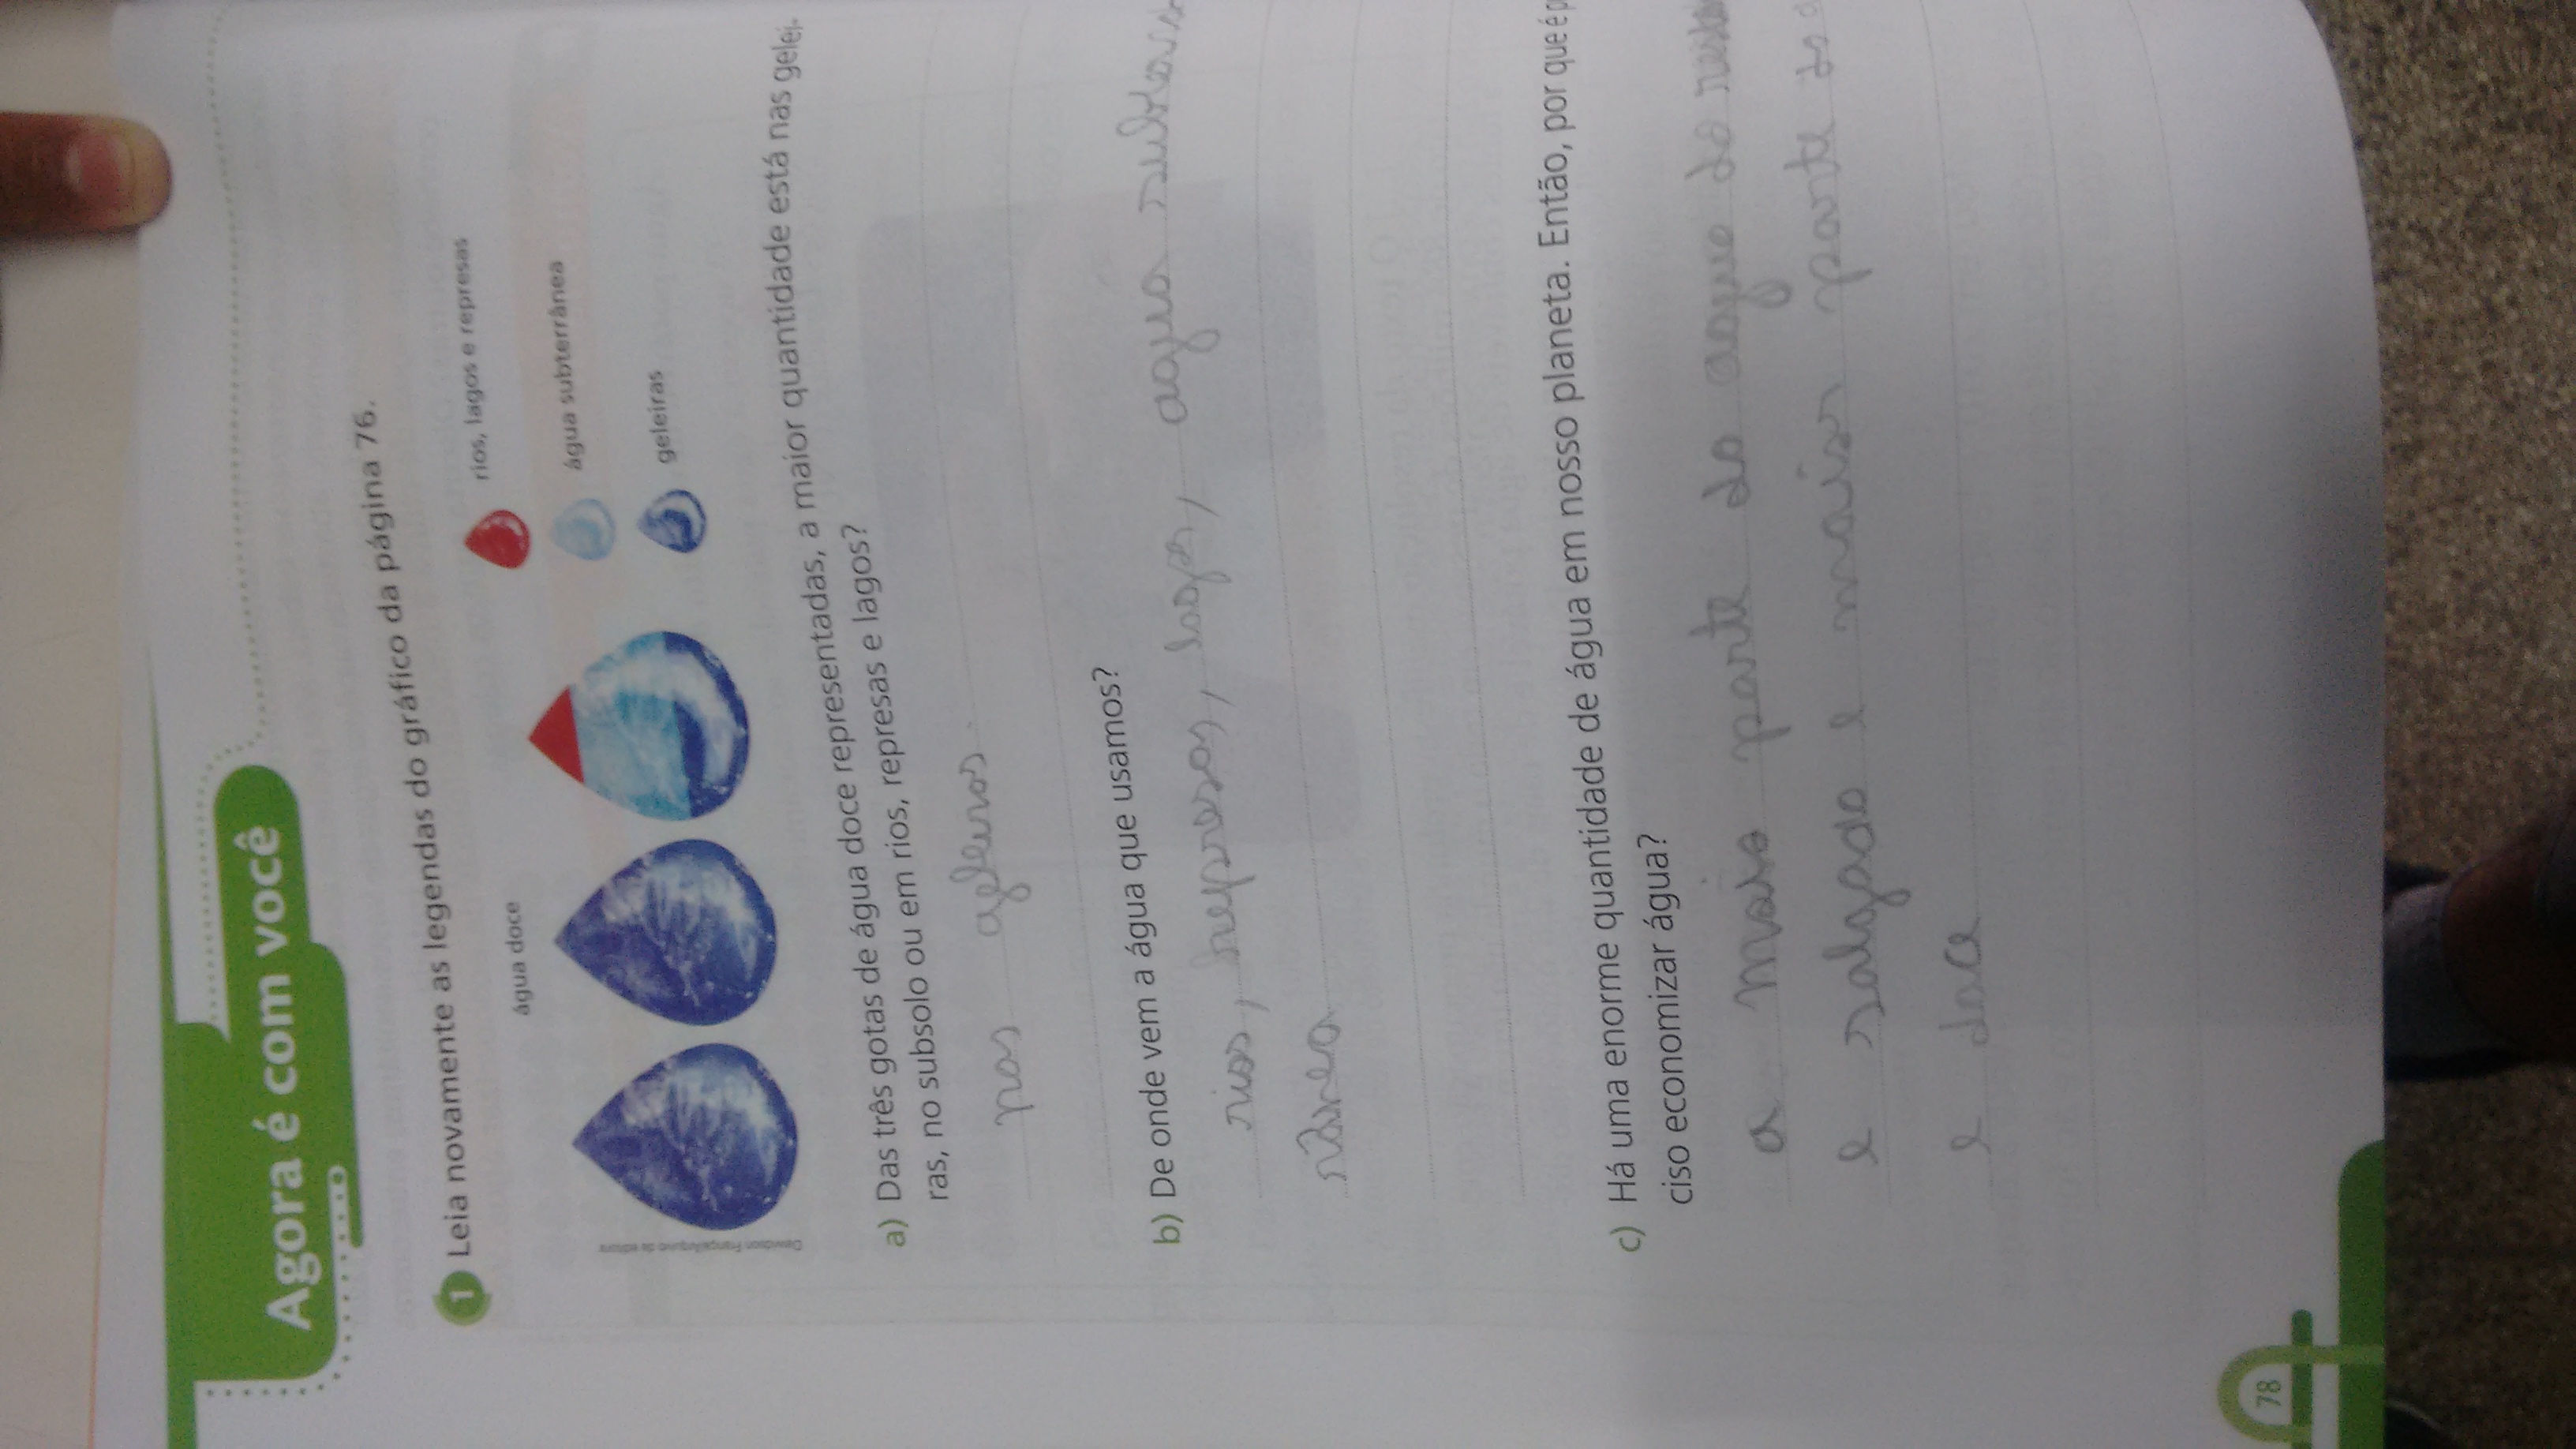 Agora é com você
1 Leia novamente as legendas do gráfico da página 76.
água doce
rios, lagos e represas
água subterrânea
geleiras
a) Das três gotas de água doce representadas, a maior quantidade está nas gelei-
ras, no subsolo ou em rios, represas e lagos?
nas
b) De onde vem a água que usamos?
rios, represas, lagos, agua subterra
nea
c) Há uma enorme quantidade de água em nosso planeta. Então, por que é p
ciso economizar água?
a maio parte da do
e salgada e maior parte
e doce
78